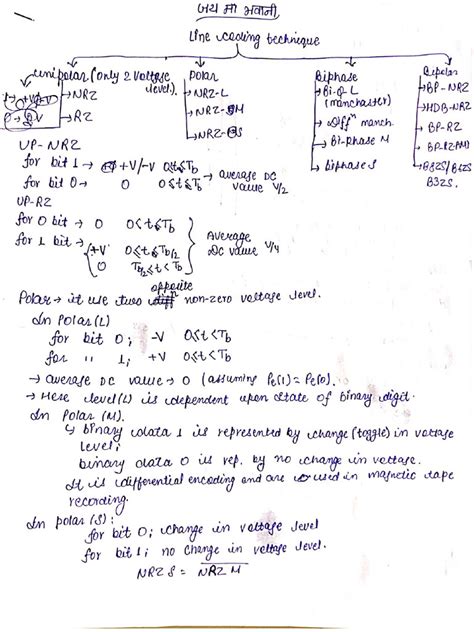 जय माँ भवानी
Line coding technique
Unipolar (Only 2 Voltage level)
→ NRZ
→ RZ
Polar
→ NRZ-L
→ NRZ-M
→ NRZ-S
Biphase
→ Bi-Φ L (manchester)
→ Diffⁿ manch
→ Bi-Phase M
→ biphase S
Bipolar
→ BP-NRZ
→ HDB-NRZ
→ BP-RZ
→ BP-RZ
→ B8ZS/B6ZS
B3ZS.
UP-NRZ
for bit 1 → +V/-V 0≤t≤Tb
for bit 0 → 0 0≤t≤Tb → average DC value V/2
UP-RZ
for 0 bit → 0 0≤t≤Tb
for 1 bit → +V 0≤t≤Tb/2
0 Tb/2≤t<Tb
Average DC value V/4
Polar → it use two opposite non-zero voltage level.
In Polar(L)
for bit 0; -V 0≤t<Tb
for " 1; +V 0≤t<Tb
→ average DC value → 0 (assuming Pe(1) = Pe(0).
→ Here level(L) is dependent upon state of binary digit.
In Polar (M).
↳ binary data 1 is represented by change (toggle) in voltage
level;
binary data 0 is rep. by no change in voltage.
It is differential encoding and are used in magnetic tape
recording.
In polar (S):
for bit 0; change in voltage level
for bit 1; no change in voltage level.
NRZ S = NRZ M